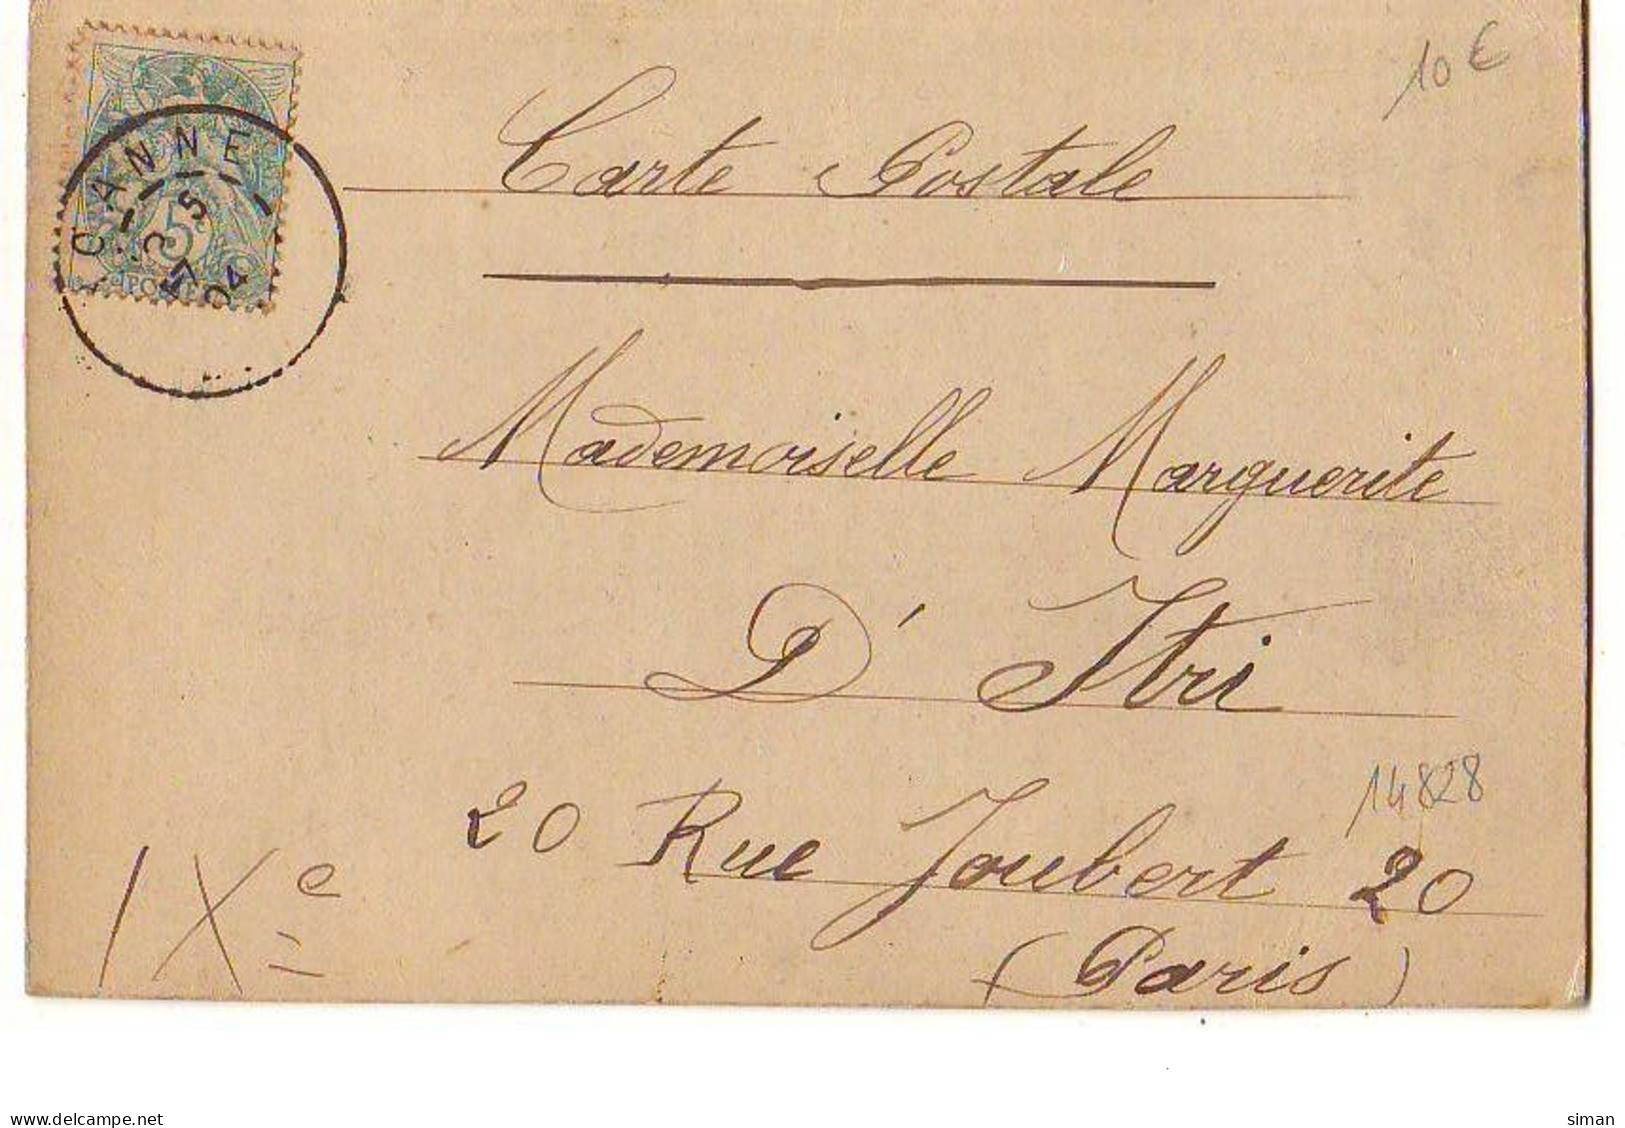 10 €
Carte Postale
5
Mademoiselle Marguerite
D' Itri
14828
20 Rue Joubert 20
IXe
(Paris)
www.delcampe.net
siman